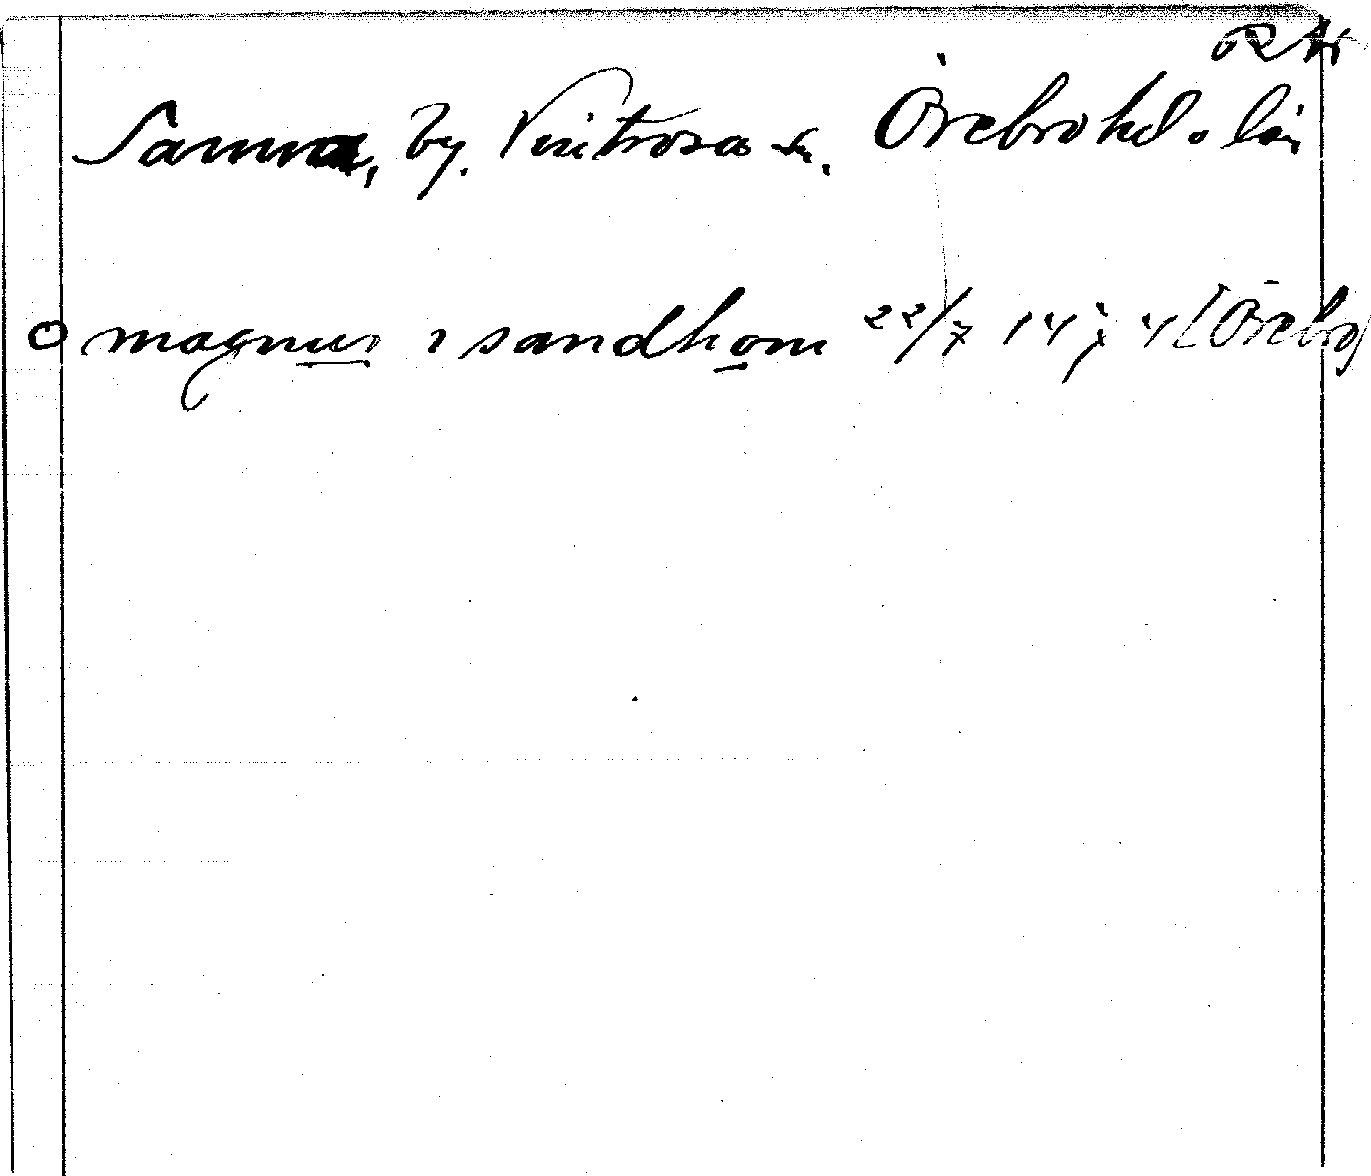 Sanna, by. Vintrosa sn. Örebro hd o län
magnus i sandhom 22/7 1474 [Örebro]